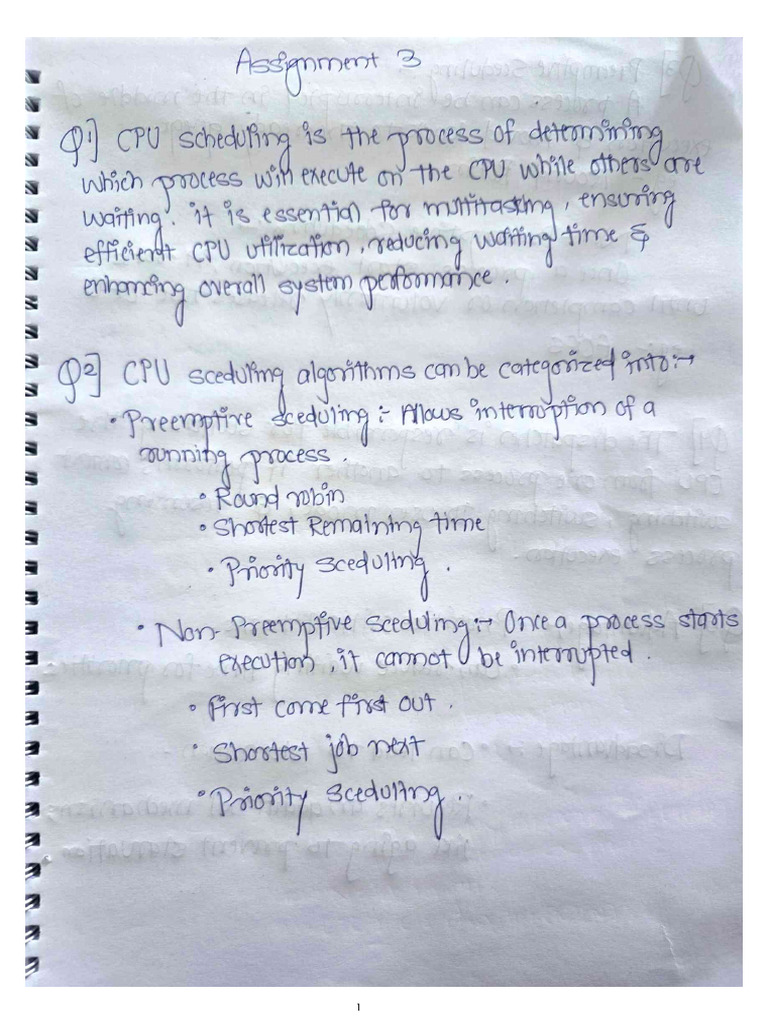 Assignment 3
Q1] CPU scheduling is the process of determining
which process will execute on the CPU while others are
waiting. it is essential for multitasking, ensuring
efficient CPU utilization, reducing waiting time &
enhancing overall system performance.
Q2] CPU sceduling algorithms can be categorized into:→
• Preemptive sceduling :- Allows interruption of a
running process.
• Round robin
• Shortest Remaining time
• Priority sceduling.
• Non-Preemptive sceduling:→ Once a process starts
execution, it cannot be interrupted.
• First come first out.
• Shortest job next
• Priority sceduling.
1